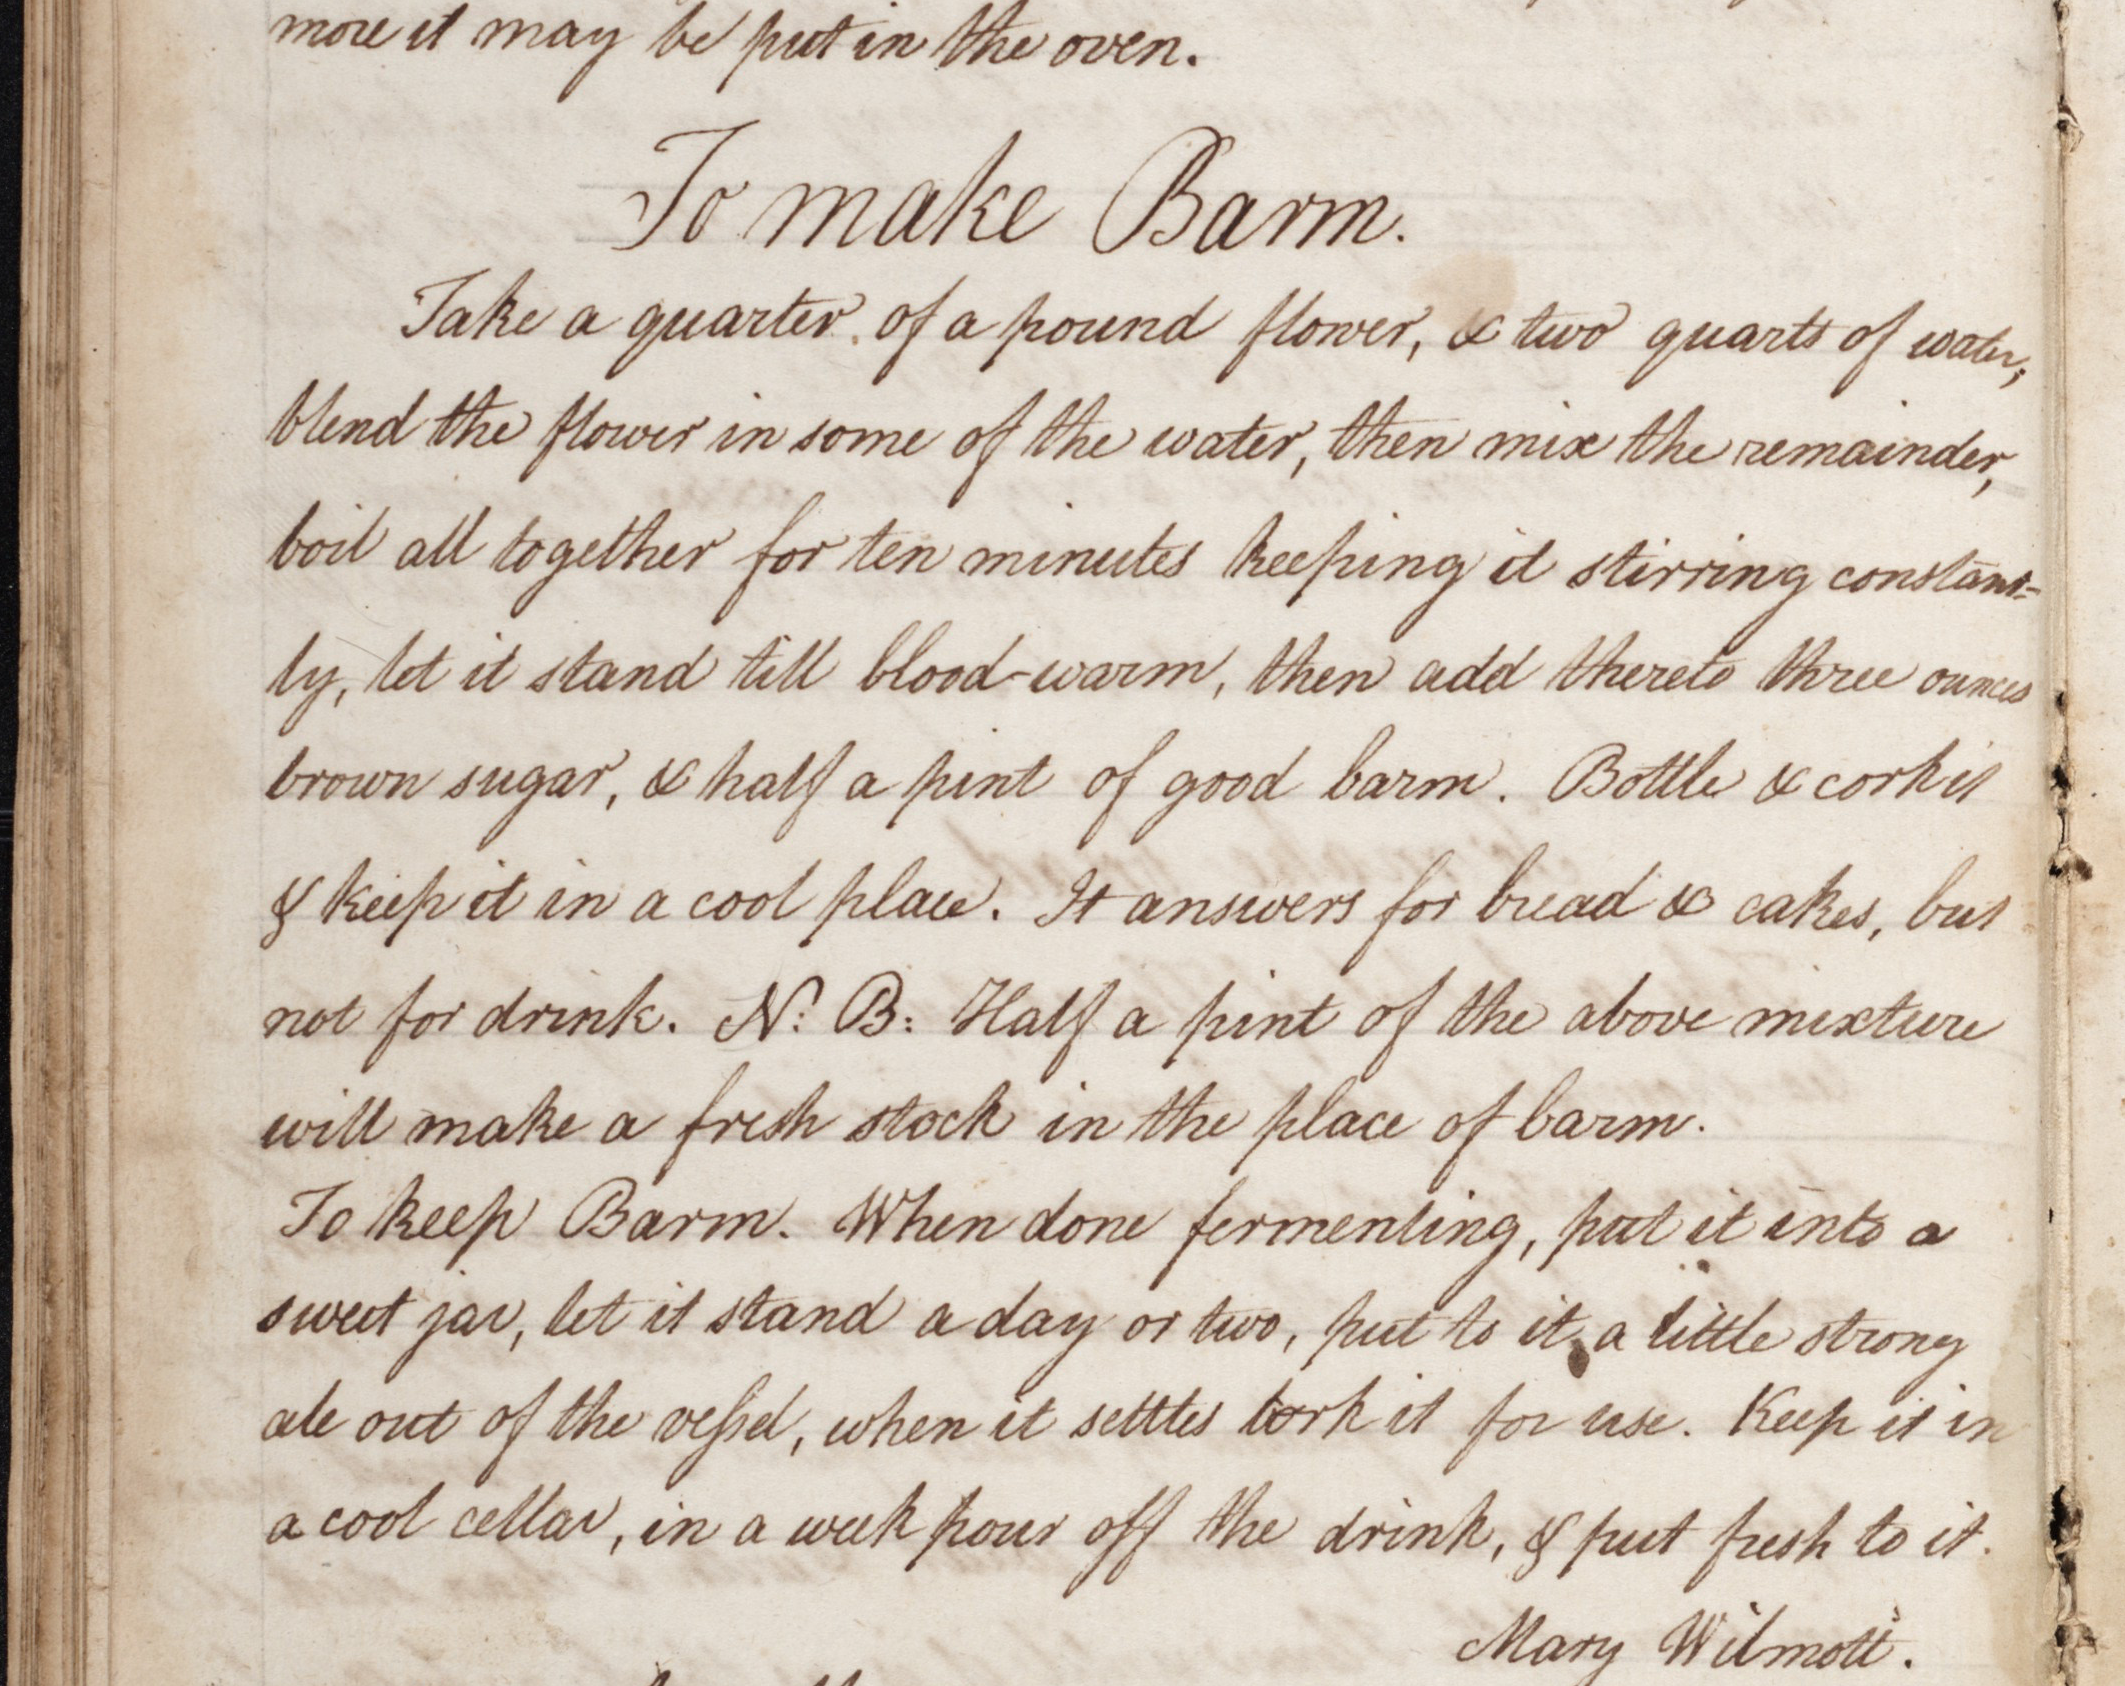 more it may be put in the oven.
To make Barm.
Take a quarter of a pound flower, & two quarts of water;
blend the flower in some of the water, then mix the remainder,
boil all together for ten minutes keeping it stirring constant=
ly, let it stand till blood-warm, then add thereto three ounces
brown sugar, & half a pint of good barm. Bottle & cork it
& keep it in a cool place. It answers for bread & cakes, but
not for drink. N: B: Half a pint of the above mixture
will make a fresh stock in the place of barm.
To keep Barm. When done fermenting, put it into a
sweet jar, let it stand a day or two, put to it a little strong
ale out of the veſsel, when it settles cork it for use. Keep it in
a cool cellar, in a week pour off the drink, & put fresh to it.
Mary Wilmott.